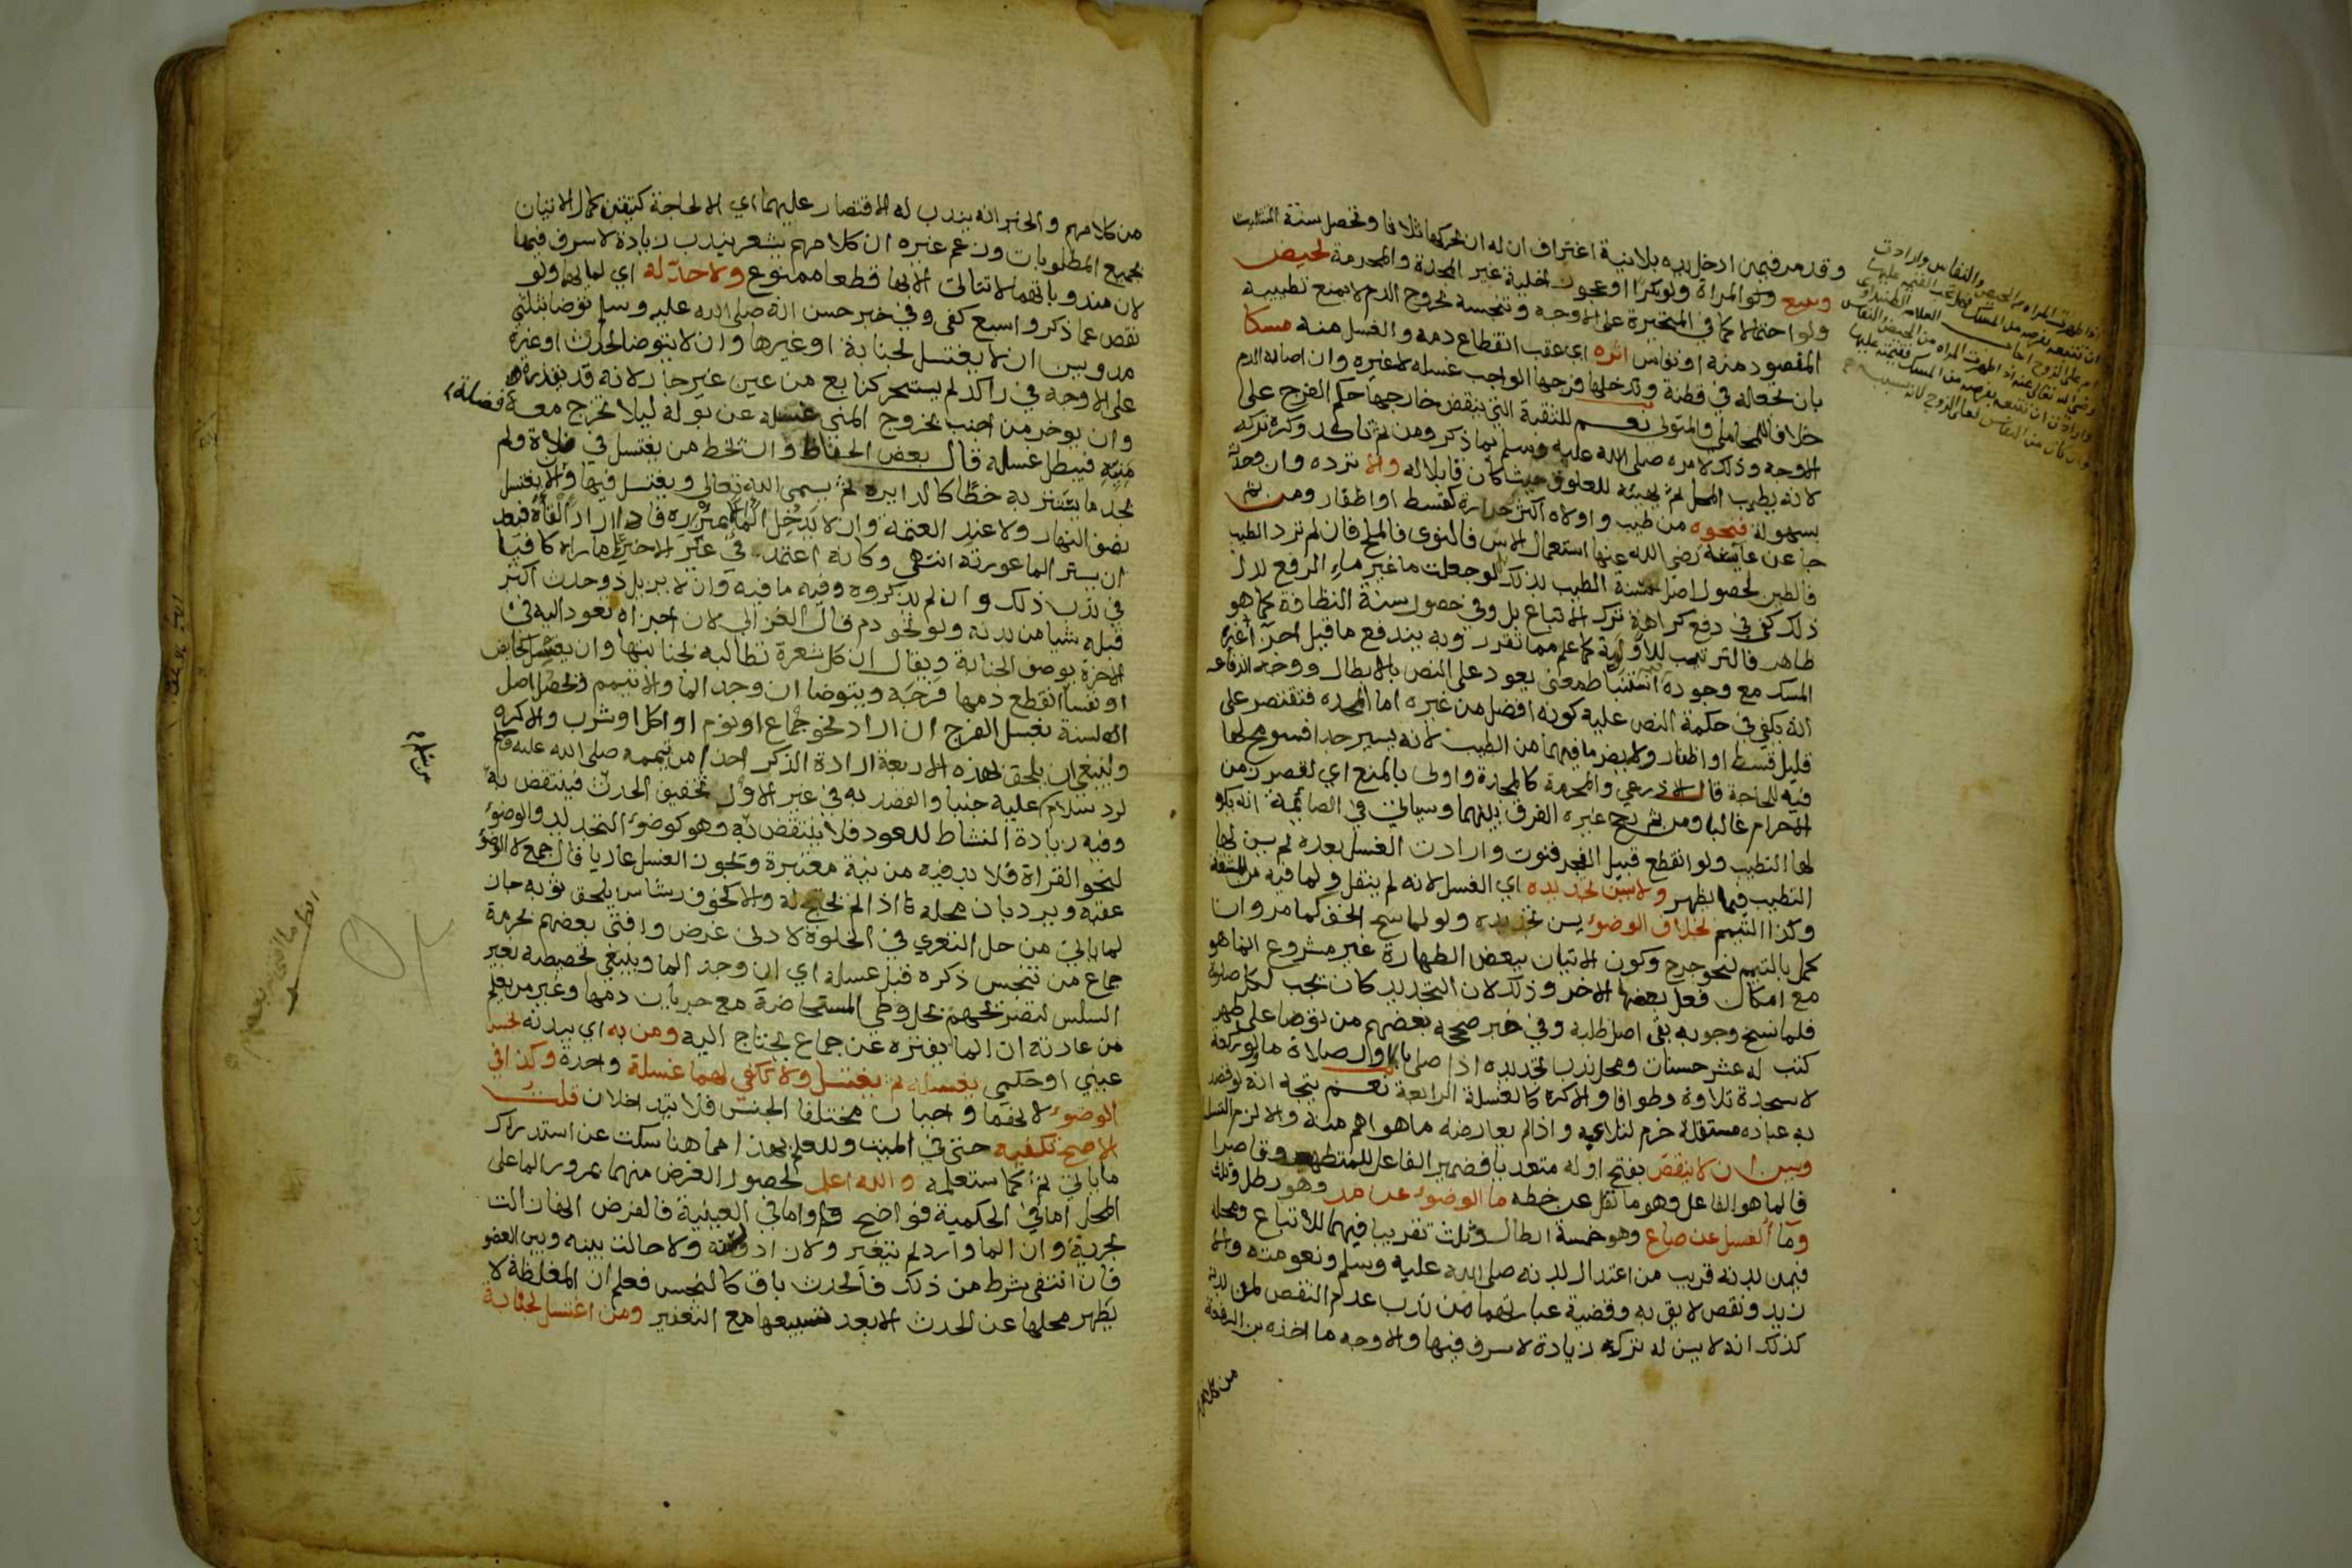 وقد مر فيمن ادخل يده بلا نية اغتراف ان له ان يحركها ثلاثا وتحصل سنة التثليث
وتتبع ولو المراة ولو بكرا او عجوزا خلية غير المحدة والمحرمة لحيض
ولو احتمالا كما في المتحيرة على الاوجه وتنجسه بخروج الدم لا يمنع تطييبه
المقصود منه او نفاس اثره اي عقب انقطاع دمه والغسل منه مسكا
بان تجعله في قطنة وتدخلها فرجها الواجب غسله لا غيره وان اصابه الدم
خلافا للمحاملي والمتولي نعم للثقبة التي ينقض خارجها حكم الفرج على
الاوجه وذلك لامره صلى الله عليه وسلم بما ذكر ومن ثم تاكد وكره تركه
لانه يطيب المحل ثم يهيئه للعلوق حيث كان قابلا له والا ترده وان وجدته
بسهولة فنحوه من طيب واولاه اكثر حرارة كقسط او اظفار ومن ثم
جا عن عايشة رضي الله عنها استعمال الاس فالنوى فالملح فان لم ترد الطيب
فالطين لحصول اصل سنة الطيب بذلك لو جعلت ما غير ماء الرفع بدل
ذلك كفى في دفع كراهة ترك الاتباع بل وفي حصول سنة النظافة كما هو
ظاهر فالترتيب للاولوية كما علم مما تقرر وبه يندفع ما قيل اجزا غيره
المسك مع وجوده استنباط معنى يعود على النص بالابطال ووجه اندفاعه
انه يكفي في حكمة النص عليه كونه افضل من غيره اما المحدة فتقتصر على
قليل قسط او اظفار ولا يضر ما فيهما من الطيب لانه يسير جدا فسومح لها
فيه للحاجة قال الاذرعي والمحرمة كالمحدة واولى بالمنع اي لقصر زمن
الاحرام غالبا ومن ثم رجح غيره الفرق بينهما وسياتي في الصائمة انه يكره
لها التطيب ولو انقطع قبيل الفجر فنوت وارادت الغسل بعده لم يسن لها
التطيب فيما يظهر ولا يسن تجديده اي الغسل لانه لم ينقل ولما فيه من المشقة
وكذا التيمم بخلاف الوضوء يسن تجديده ولو لماسح الخف كما مر وان
كمل بالتيمم لنحو جرح وكون الاتيان ببعض الطهارة غير مشروع انما هو
مع امكان فعل بعضها الاخر وذلك لان التجديد كان يجب لكل صلوة
فلما نسخ وجوبه بقي اصل طلبه وفي خبر صححه بعضهم من توضا على طهر
كتب له عشر حسنات ومحل ندب تجديده اذا صلى بالاول صلاة ما ولو ركعة
لا سجدة تلاوة وطوافا والا كره كالغسلة الرابعة نعم يتجه انه لو قصد
به عبادة مستقلة حرم لتلاعبه واذا لم يعارضه ما هو اهم منه والا لزم التسلسل
ويسن ان لا ينقص بفتح اوله متعديا فضمير الفاعل للمتطهر وقاصرا
فالما هو الفاعل وهو ما نقل عن خطه ما الوضوء عن مد وهو رطل وثلث
وما الغسل عن صاع وهو خمسة ارطال وثلث تقريبا فيهما للاتباع ومحله
فيمن بدنه قريب من اعتدال بدنه صلى الله عليه وسلم ونعومته والا
زيد ونقص لائق به وقضية عبارتهما من ندب عدم النقص لمن بدنه
كذلك انه لا يسن له ترك زيادة لا سرف فيها والاوجه ما اخذه بن الرفعة
من كلامهم
من كلامهم والخبر انه يندب له الاقتصار عليهما اي الا لحاجة كتيقن كمال الاتيان
بجميع المطلوبات وزعم غيره ان كلامهم يشعر بندب زيادة لا سرف فيها
لان مندوباتهما لا تتاتى الا بها قطعا ممنوع ولا حد له اي لمائهما ولو
نقص عما ذكر واسبغ كفى وفي خبر حسن انه صلى الله عليه وسلم توضا بثلثي
مد ويسن ان لا يغتسل لجنابة او غيرها وان لا يتوضا لحدث او غيره
على الاوجه في راكد لم يستبحر كنابع من عين غير جار لانه قد يقذره
وان يوخر من اجنب بخروج المني غسله عن بوله ليلا يخرج معه فضلة
منيه فيبطل غسله قال بعض الحفاظ وان يخط من يغتسل في فلاة ولم
يجد ما يستتر به خطا كالدايرة ثم يسمي الله تعالى ويغتسل فيها وان لا يغتسل
نصف النهار ولا عند العتمة وان لا يدخل الما الا بمئزر فان اراد القاه فبعد
ان يستر الما عورته انتهى وكانه اعتمد في غير الاخير على ما راه كافيا
في ندب ذلك وان لم يذكروه وفيه ما فيه وان لا يزيل ذو حدث اكبر
قبله شيا من بدنه ولو نحو دم قال الغزالي لان اجزاه تعود اليه في
الاخرة بوصف الجنابة ويقال ان كل شعرة تطالبه بجنابتها وان يغسل كحايض
او نفسا انقطع دمها فرجه ويتوضا ان وجد الما والا تيمم ويحصل اصل
السنة بغسل الفرج ان اراد نحو جماع او نوم او اكل او شرب والا كره
وينبغي ان يلحق بهذه الاربعة ارادة الذكر اخذا من تيممه صلى الله عليه وسلم
لرد سلام من سلم عليه جنبا والقصد به في غير الاول تخفيف الحدث فينتقض به
وفيه زيادة النشاط للعود فلا ينتقض به وهو كوضوء التجديد والوضوء
لنحو القراة فلا بد فيه من نية معتبرة ويجوز الغسل عاريا قال جمع لا الوضوء
عقبه ويرد بان محله ما اذا لم يحتج له والا كخوف رشاش يلحق ثوبه جاز
لما ياتي من حل التعري في الخلوة لادنى غرض وافتى بعضهم بحرمة
جماع من تنجس ذكره قبل غسله اي ان وجد الما وينبغي تخصيصه بغير
السلس لتصريحهم بحل وطي المستحاضة مع جريان دمها وغير من يعلم
من عادته ان الما يفتره عن جماع يحتاج اليه ومن به اي ببدنه نجس
عيني او حكمي يغسله ثم يغتسل ولا تكفي لهما غسلة واحدة وكذا في
الوضوء لانهما واجبان مختلفا الجنس فلا يتداخلان قلت
الاصح تكفيه حتى في الميت وللعلم بهذا مما هنا سكت عن استدراك
ما ياتي ثم كما ستعلمه والله اعلم لحصول الغرض منهما بمرور الما على
المحل اما في الحكمية فواضح واما في العينية فالفرض انها زالت
بجريه وان الما وارد لم يتغير ولا زاد وزنه ولا حالت بينه وبين العضو
فان انتفى شرط من ذلك فالحدث باق كالنجس فعلم ان المغلظة لا
يطهر محلها عن الحدث الا بعد تسبيعها مع التعفير ومن اغتسل لجنابة